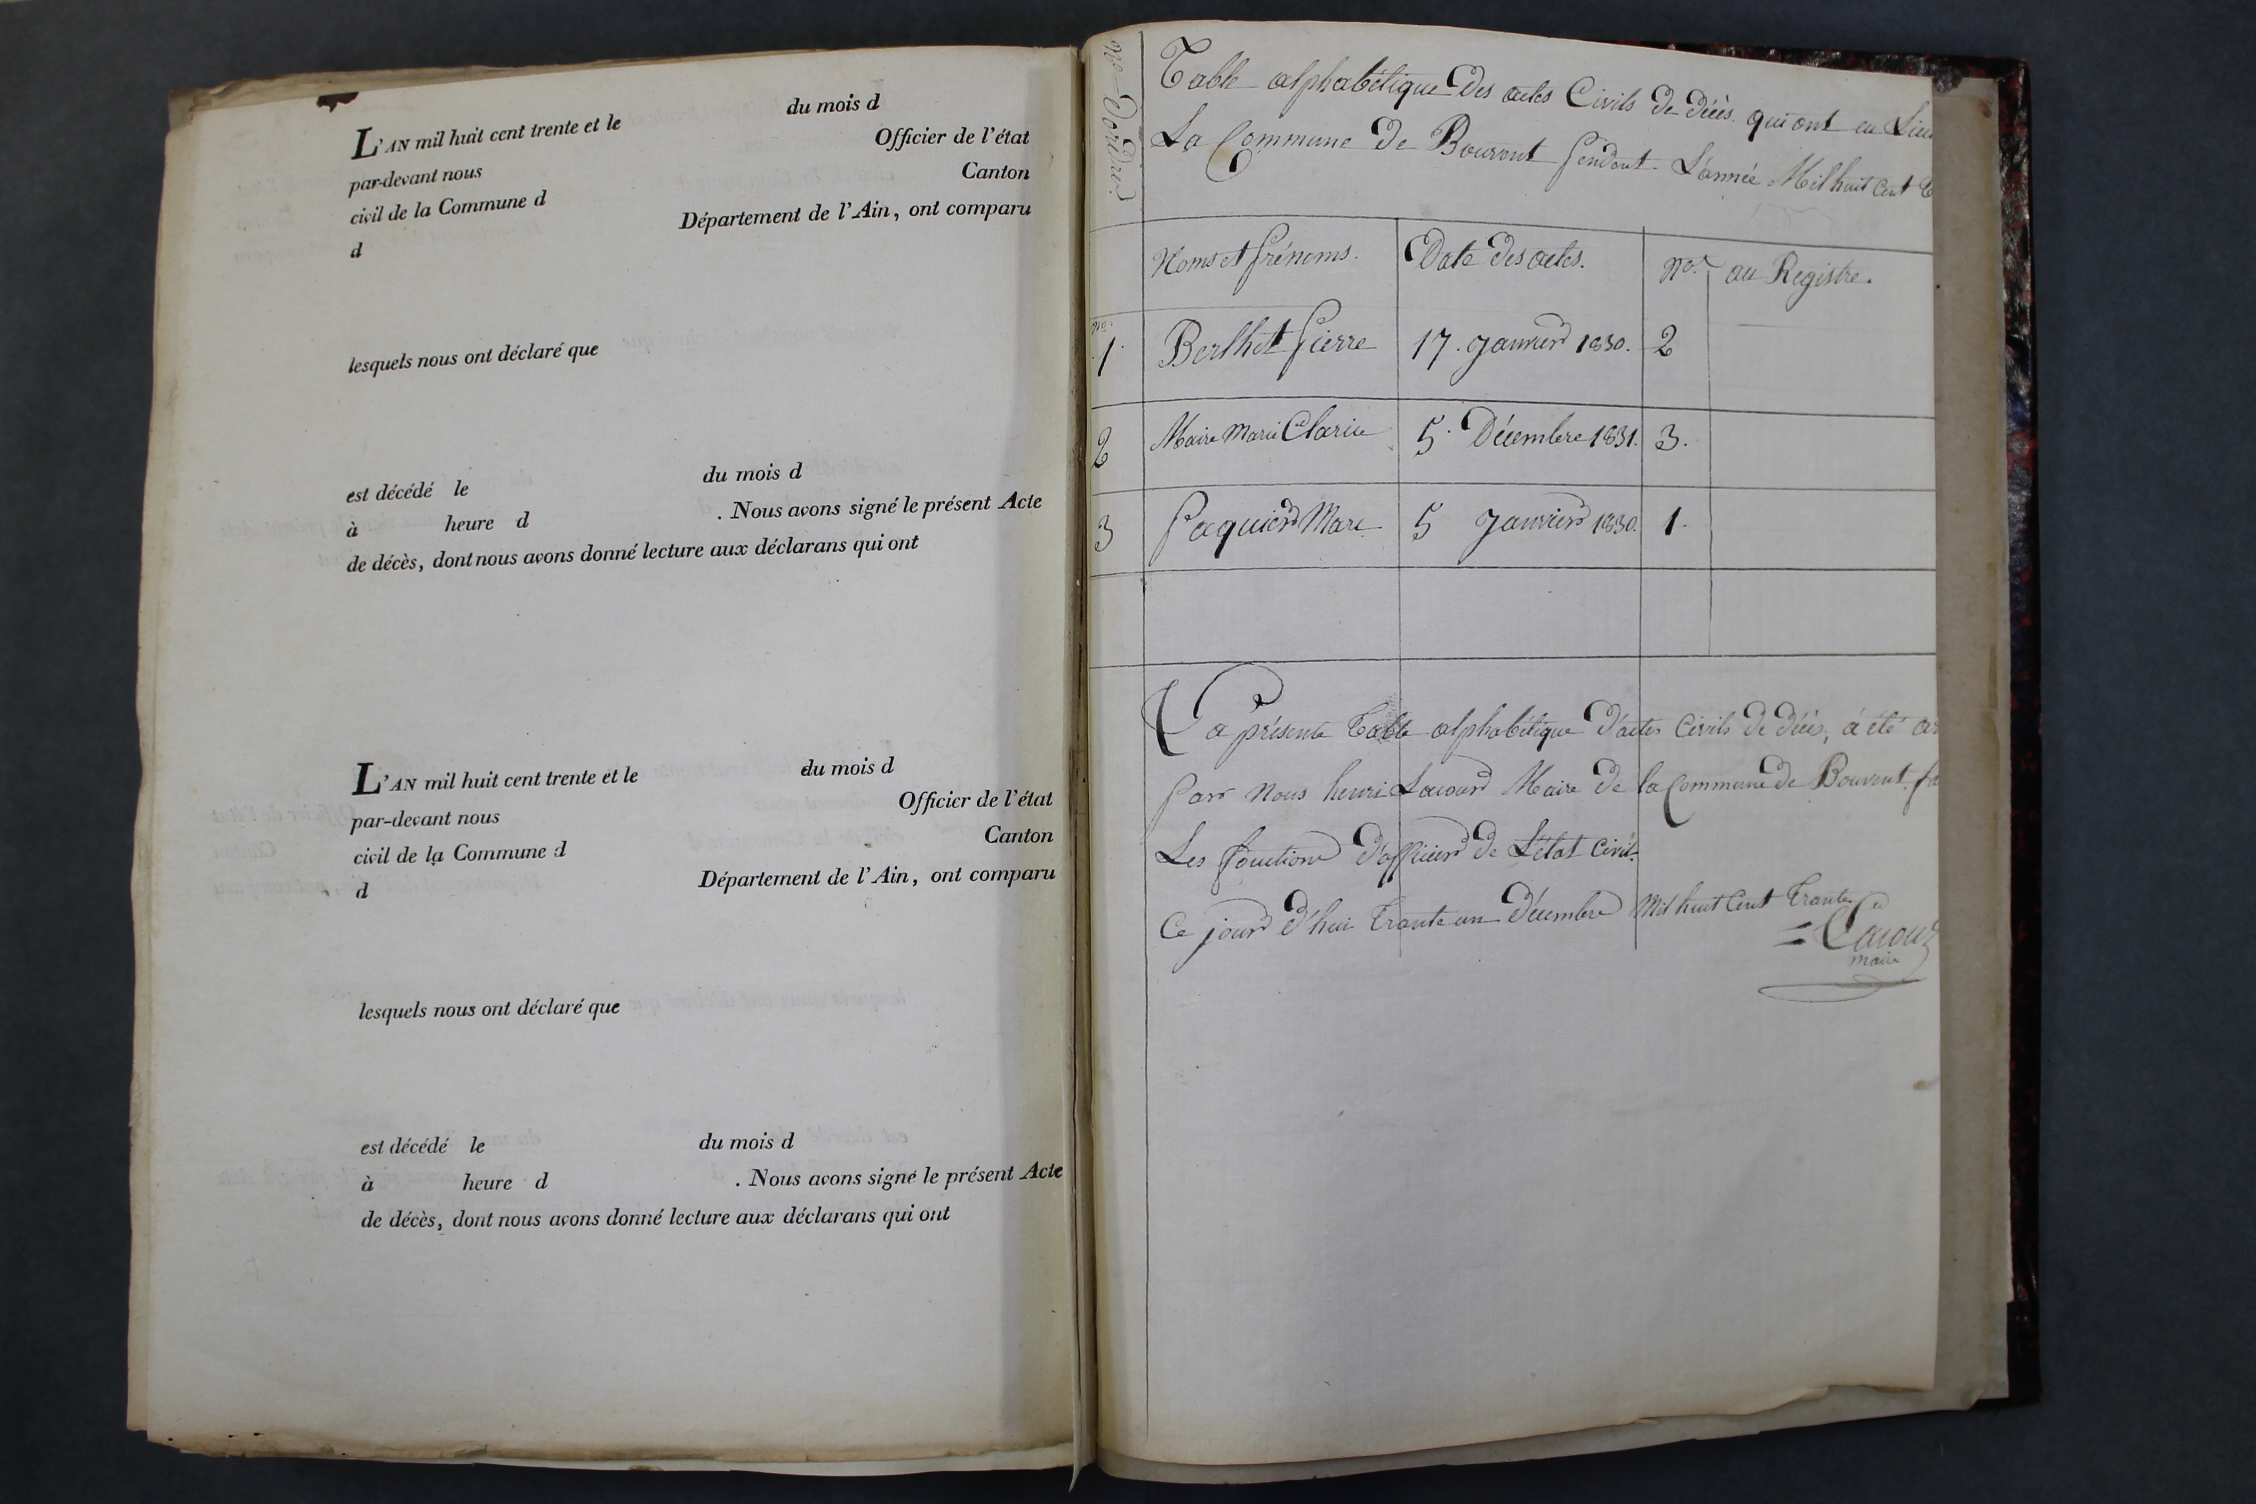 L'AN mil huit cent trente et le du mois d
par-devant nous Officier de l'état
civil de la Commune d Canton
d Département de l'Ain, ont comparu
lesquels nous ont déclaré que
est décédé le du mois d
à heure d . Nous avons signé le présent Acte
de décès, dont nous avons donné lecture aux déclarans qui ont
L'AN mil huit cent trente et le du mois d
par-devant nous Officier de l'état
civil de la Commune d Canton
d Département de l'Ain, ont comparu
lesquels nous ont déclaré que
est décédé le du mois d
à heure d . Nous avons signé le présent Acte
de décès, dont nous avons donné lecture aux déclarans qui ont
Nos Dordre
Table alphabétique Des actes Civils de décès qui ont eu Lieu
La Commune De Bouvent pendant L'année Mil huit Cent
Noms et prénoms. Date des actes. No. au Registre.
No.
1. Berthet pierre 17. Janvier 1830. 2
2 Maire Marie 5. Décembre 1831. 3.
3 paquier Marc 5 Janvier 1830. 1.
La présente Table alphabétique D'actes Civils de décès, à été
par Nous henri Lacour Maire de la Commune de Bouvent
Les fonctions d'officier de L'état Civil.
Ce jour d'hui Trante un Décembre Mil huit Cent Trante
= Lacour
maire